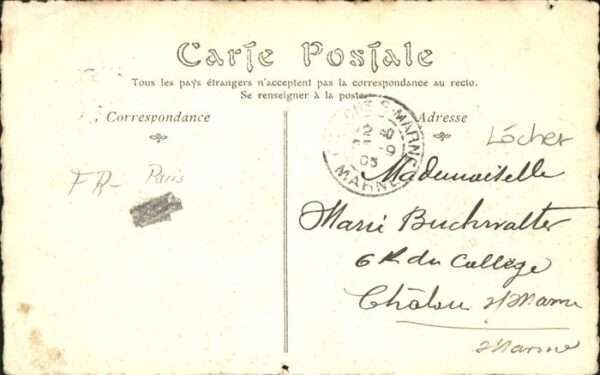 Carte Postale
Tous les pays étrangers n'acceptent pas la correspondance au recto.
Se renseigner à la poste.
Correspondance
Adresse
S-MARNE
MARNE
Löcher
FR- Paris
Mademoiselle
Marie Buchwalter
6 R du Collège
Châlons s/Marne
Marne